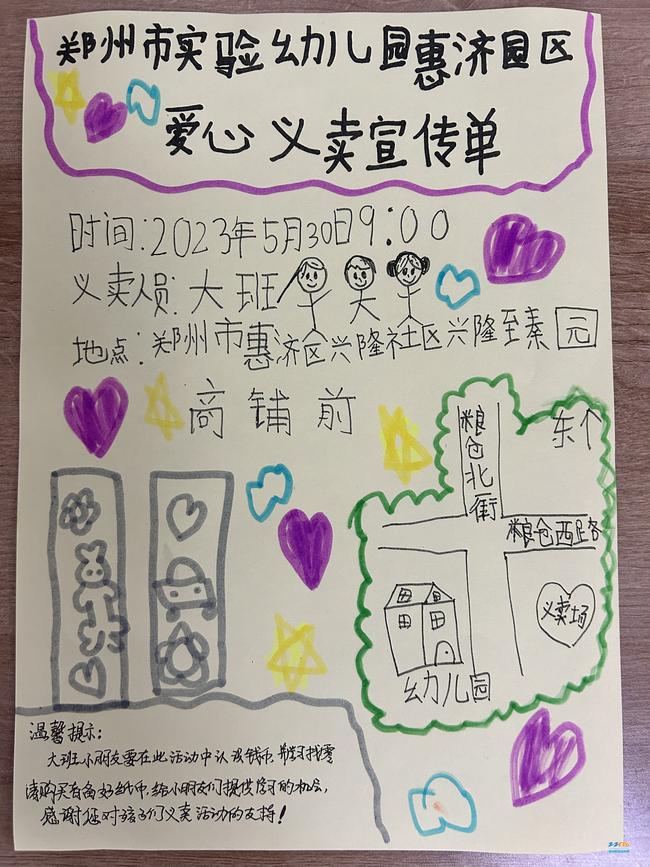 郑州市实验幼儿园惠济园区
爱心义卖宣传单
时间:2023年5月30日9:00
义卖人员:大班
地点:郑州市惠济区兴隆社区兴隆至秦园
商铺前
东个
粮仓北街
粮仓西路
义卖场
幼儿园
温馨提示:
大班小朋友要在此活动中认识钱币,并学习找零
请购买者备好纸币,给小朋友们提供学习的机会,
感谢您对孩子们义卖活动的支持!